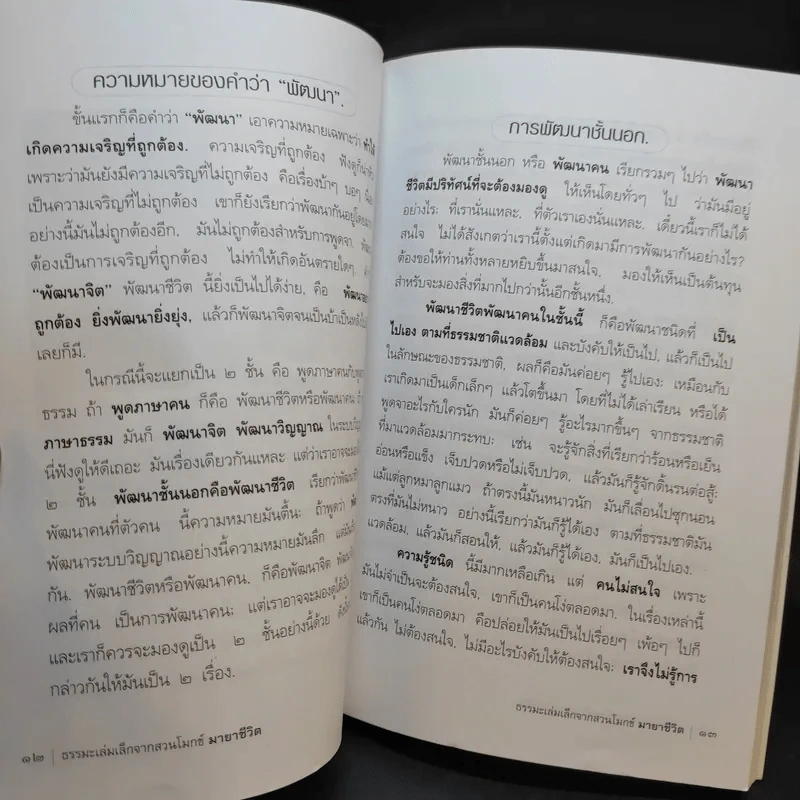 ความหมายของคำว่า “พัฒนา”.
ขั้นแรกก็คือคำว่า “พัฒนา” เอาความหมายเฉพาะว่า
เกิดความเจริญที่ถูกต้อง. ความเจริญที่ถูกต้อง ฟังดูก็น่า
เพราะว่ามันยังมีความเจริญที่ไม่ถูกต้อง คือเรื่องบ้าๆ บอๆ
เป็นความเจริญที่ไม่ถูกต้อง เขาก็ยังเรียกว่าพัฒนากันอยู่โดย
อย่างนี้มันไม่ถูกต้องอีก. มันไม่ถูกต้องสำหรับการพูดจา,
ต้องเป็นการเจริญที่ถูกต้อง ไม่ทำให้เกิดอันตรายใดๆ.
“พัฒนาจิต” พัฒนาชีวิต นี้ยิ่งเป็นไปได้ง่าย, คือ
ถูกต้อง ยิ่งพัฒนายิ่งยุ่ง, แล้วก็พัฒนาจิตจนเป็นบ้าเป็น
เลยก็มี.
ในกรณีนี้จะแยกเป็น ๒ ชั้น คือ พูดภาษาคนกับ
ธรรม ถ้า พูดภาษาคน ก็คือ พัฒนาชีวิตหรือพัฒนาคน
ภาษาธรรม มันก็ พัฒนาจิต พัฒนาวิญญาณ ในระบบ
นี่ฟังดูให้ดีเถอะ มันเรื่องเดียวกันแหละ แต่ว่าเราอาจจะมอง
๒ ชั้น พัฒนาชั้นนอกคือพัฒนาชีวิต เรียกว่าพัฒนา
พัฒนาคนที่ตัวคน นี้ความหมายมันตื้น; ถ้าพูดว่า
พัฒนาระบบวิญญาณอย่างนี้ความหมายมันลึก
กัน. พัฒนาชีวิตหรือพัฒนาคน, ก็คือพัฒนาจิต
ผลที่คน เป็นการพัฒนาคน; แต่เราอาจจะมองดูได้
และเราก็ควรจะมองดูเป็น ๒ ชั้นอย่างนี้ด้วย
กล่าวกันให้มันเป็น ๒ เรื่อง.
๑๒ | ธรรมะเล่มเล็กจากสวนโมกข์ มายาชีวิต
การพัฒนาชั้นนอก.
พัฒนาชั้นนอก หรือ พัฒนาคน เรียกรวมๆ ไปว่า พัฒนา
ชีวิตมีปริทัศน์ที่จะต้องมองดู ให้เห็นโดยทั่วๆ ไป ว่ามันมีอยู่
อย่างไร: ที่เรานั่นแหละ. ที่ตัวเราเองนั่นแหละ. เดี๋ยวนี้เราก็ไม่ได้
สนใจ ไม่ได้สังเกตว่าเรานี้ตั้งแต่เกิดมามีการพัฒนากันอย่างไร?
ต้องขอให้ท่านทั้งหลายหยิบขึ้นมาสนใจ, มองให้เห็นเป็นต้นทุน
สำหรับจะมองสิ่งที่มากไปกว่านั้นอีกชั้นหนึ่ง.
พัฒนาชีวิตพัฒนาคนในชั้นนี้ ก็คือพัฒนาชนิดที่ เป็น
ไปเอง ตามที่ธรรมชาติแวดล้อม และบังคับให้เป็นไป, แล้วก็เป็นไป
ในลักษณะของธรรมชาติ, ผลก็คือมันค่อยๆ รู้ไปเอง; เหมือนกับ
เราเกิดมาเป็นเด็กเล็กๆ แล้วโตขึ้นมา โดยที่ไม่ได้เล่าเรียน หรือได้
พูดจาอะไรกับใครนัก มันก็ค่อยๆ รู้อะไรมากขึ้นๆ จากธรรมชาติ
ที่มาแวดล้อมมากระทบ; เช่น จะรู้จักสิ่งที่เรียกว่าร้อนหรือเย็น
อ่อนหรือแข็ง เจ็บปวดหรือไม่เจ็บปวด, แล้วมันก็รู้จักดิ้นรนต่อสู้;
แม้แต่ลูกหมาลูกแมว ถ้าตรงนี้มันหนาวนัก มันก็เลื่อนไปซุกนอน
ตรงที่มันไม่หนาว อย่างนี้เรียกว่ามันก็รู้ได้เอง ตามที่ธรรมชาติมัน
แวดล้อม, แล้วมันก็สอนให้, แล้วมันก็รู้ได้เอง, มันก็เป็นไปเอง.
ความรู้ชนิด นี้มีมากเหลือเกิน แต่ คนไม่สนใจ เพราะ
มันไม่จำเป็นจะต้องสนใจ, เขาก็เป็นคนโง่ตลอดมา, ในเรื่องเหล่านี้
เขาก็เป็นคนโง่ตลอดมา คือปล่อยให้มันเป็นไปเรื่อยๆ เพ้อๆ ไปก็
แล้วกัน ไม่ต้องสนใจ, ไม่มีอะไรบังคับให้ต้องสนใจ; เราจึงไม่รู้การ
ธรรมะเล่มเล็กจากสวนโมกข์ มายาชีวิต | ๑๓